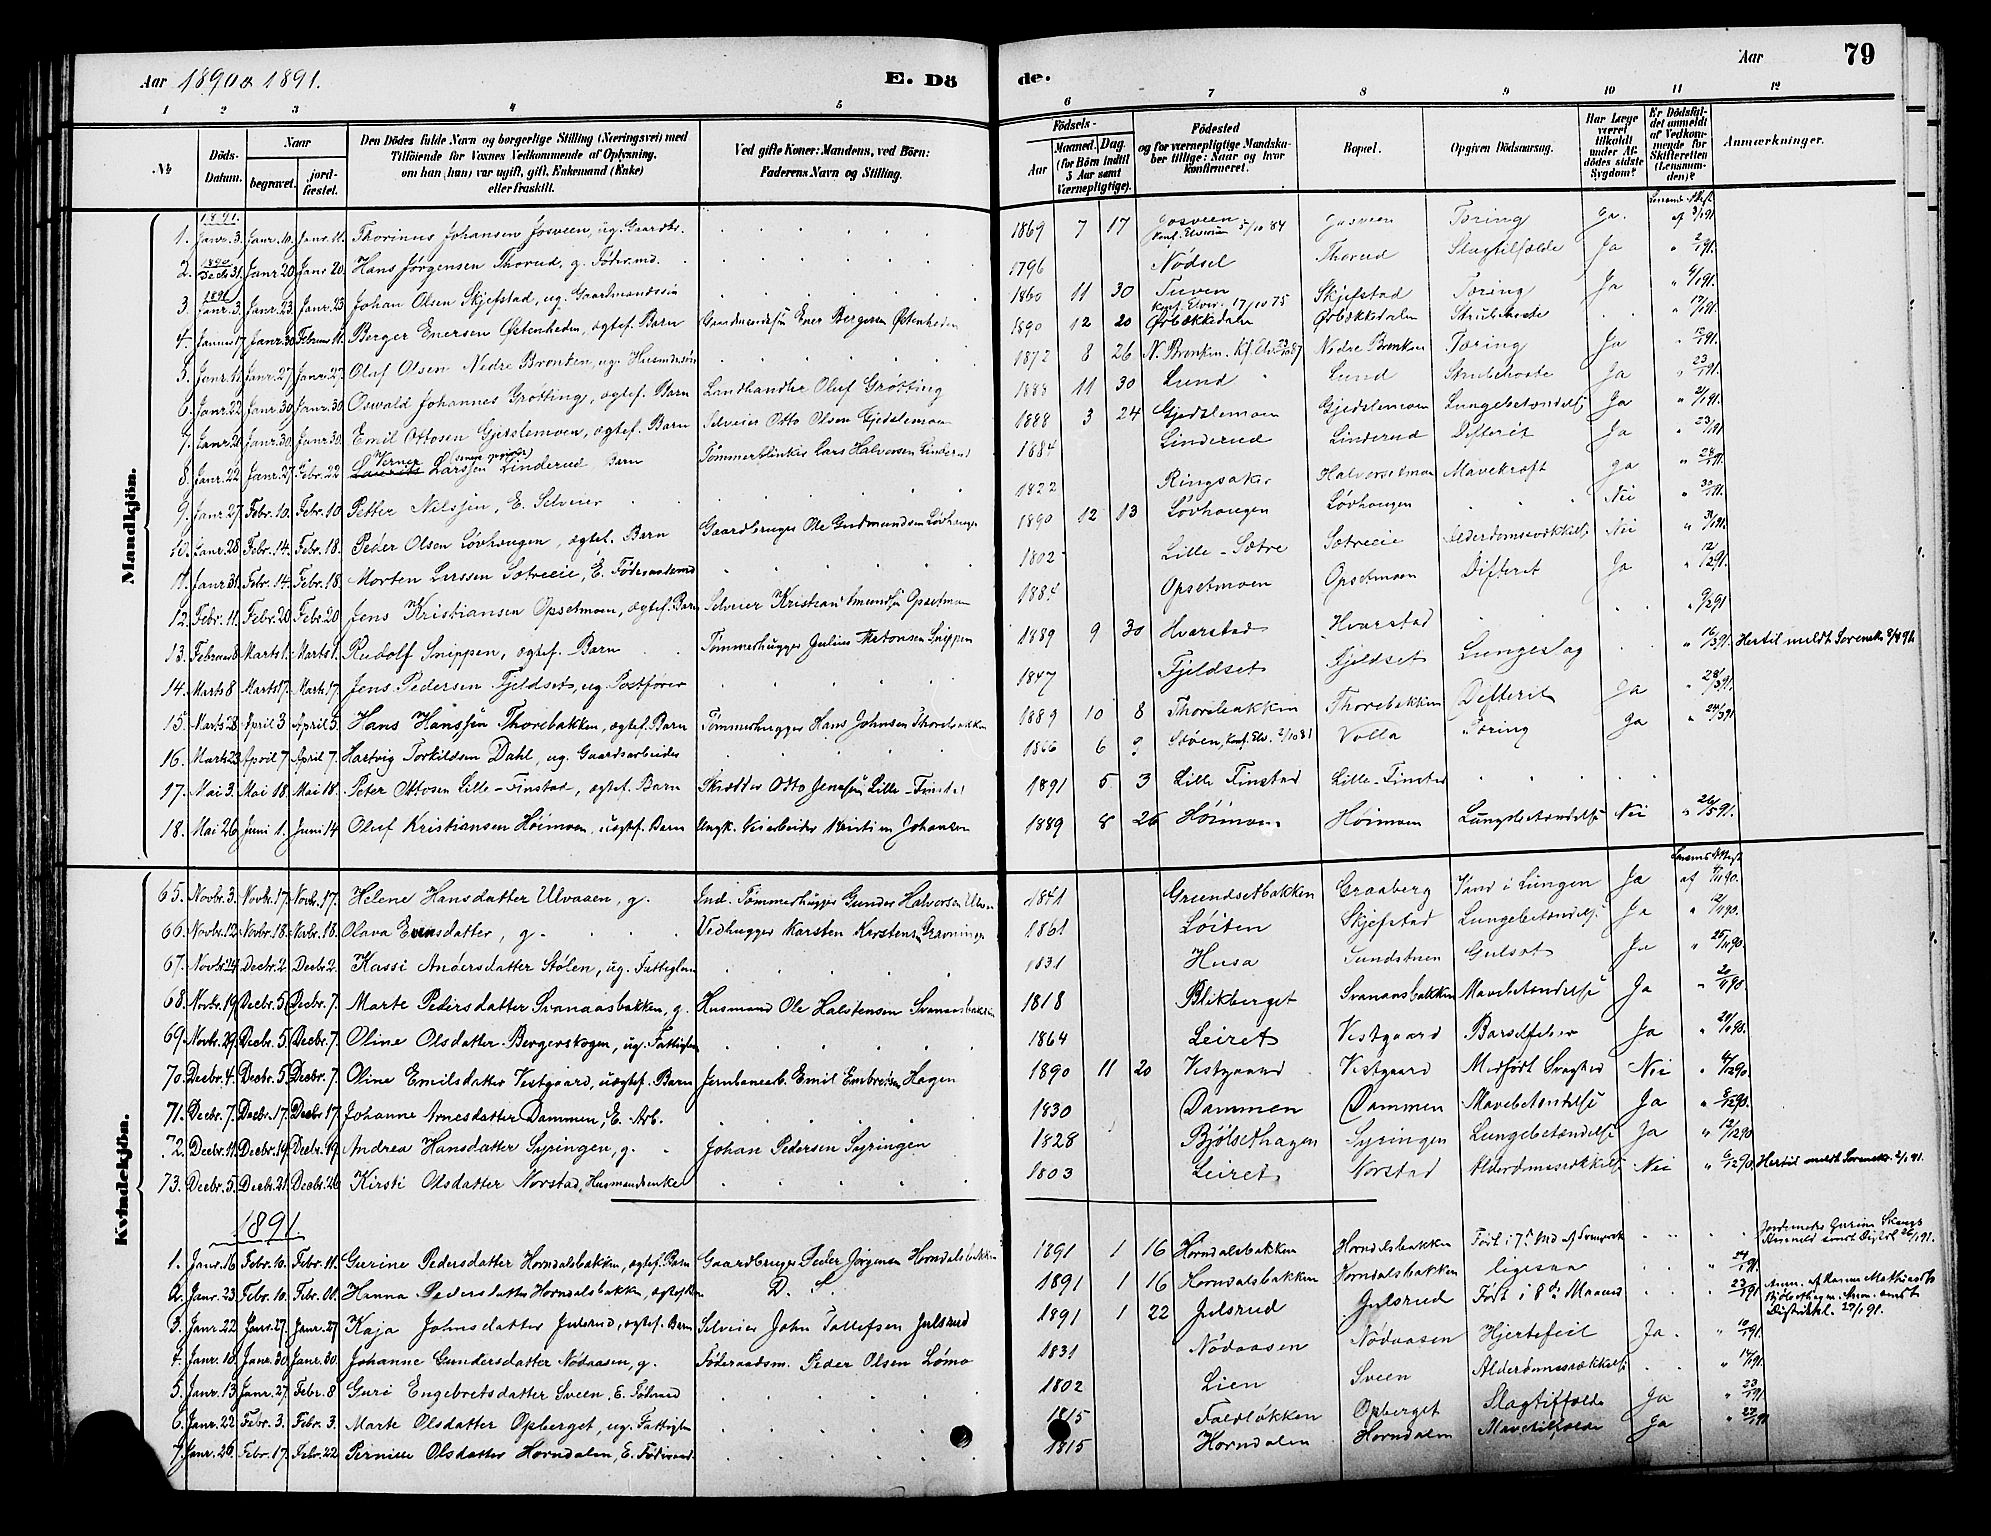 Aar 1890 & 1891. E. Dö de. Aar 79
1 2 3 4 5 6 7 8 9 10 11 12
№ Döds-Datum. Naar begravet. jord-fæstet. Den Dödes fulde Navn og borgerlige Stilling (Næringsvei) med Tilföiende for Voxnes Vedkommende af Oplysning, om han (hun) var ugift, gift, Enkemand (Enke) eller fraskilt. Ved gifte Koner: Mandens, ved Börn: Faderens Navn og Stilling. Födsels- Aar Maaned. Dag (for Börn indtil 5 Aar samt Værnepligtige). Födested og for værnepligtige Mandskaber tillige: Naar og hvor konfirmeret. Bopæl. Opgiven Dödsaarsag. Har Læge været tilkaldt under Afdödes sidste Sygdom? Er Dödsfaldet anmeldt af Vedkommende for Skifteretten (Lensmanden)? Anmærkninger.
Mandkjön.
1891.
1. Janr. 3. Janr. 10. Janr. 11. Thorinus Johansen Josveen, ug. Gaardbr. 1869 7 17 Josveen Konf. Elverum 5/10 84 Josveen Tæring Ja. af 3/1 91
2. 1890 Decbr 31. Janr 20 Janr 20. Hans Jørgensen Thorud, g. Föder.md. 1796 Nødsel Thorud Slagtilfælde Ja " 2/1 91.
3. 1891 Janr. 3. Janr. 23. Janr. 23 Johan Olsen Skjefstad, ug. Gaardmandssøn 1860 11 30 Tuven Konf. Elver. 17/10 75 Skjefstad Tæring Ja " 4/1 91.
4. Januar 17. Janr. 30 Februar 11. Berger Enersen Østenheden, ægtef. Barn Gaardmandssøn Ener Bergersen Østenheden 1890 12 20 Ørbækkedalen Ørbækkedalen Strubehoste " 17/1 91
5. Janr. 11. Janr. 27. Janr. 27. Oluf Olsen Nedre Brenden, ug. Husmdssøn 1872 8 26 N. Brenken. Nedre Brenken Tæring Ja " 12/1 91.
6. Janr. 22. Janr. 30 Janr. 30. Oswald Johannes Grøtting, ægtef. Barn Landhandler Oluf Grøtting 1888 11 30 Lund Lund Strubehoste Ja " 23/1 91.
7. Janr. 20. Janr. 30. Janr. 30. Emil Ottosen Gjedslemoen, ægtef. Barn Selveier Otto Olsen Gjedslemoen 1888 3 24 Gjedslemoen Gjedslemoen Lungebetændelse Ja " 21/1 91.
8. Janr. 22 Janr. 27 Febr. 22. Verner Larssen Linderud, Barn Tømmerblinker Lars Halvorsen Linderud 1884 Linderud Linderud Difterit Ja " 23/1 91
9. Janr. 27. Febr. 10. Febr. 10. Petter Nilssen, E. Selveier 1822 Ringsaker Halvorsetmoen Mavekræft Ja " 28/1 91.
10. Janr. 28. Febr. 14. Febr. 18. Peder Olsen Løvhaugen, ægtef. Barn Gaardbruger Ole Gudmundsen Løvhaugen 1890 12 13 Løvhaugen Løvhaugen Nei " 30/1 91.
11. Janr. 31. Febr. 14 Febr. 18. Morten Larssen Sætreeie, E. Föderaadsmd 1802 Lille-Sætre Sætreeie Alderdomssvækkelse Nei " 31/1 91.
12. Febr. 11. Febr. 20 Febr. 20 Jens Kristiansen Opsetmoen, ægtef. Barn Selveier Kristian Opsetmoen 1884 Opsetmoen Opsetmoen Difterit Ja " 12/2 91
13. Februar 8 Marts 1. Marts 1. Rudolf Snippen, ægtef. Barn Tømmerhugger Julius Snippen 1889 9 30 Hvarstad Hvarstad " 9/2 91
14. Marts 8 Marts 17. Marts 17. Jens Pedersen Fjeldset, ug. Postfører 1847 Fjeldset Fjeldset Lungeslag " 16/3 91. Hertil meldt
15. Marts 28 April 3 April 5. Hans Hanssen Thorebakken, ægtef. Barn Tømmerhugger Hans Johnsen Thorebakken 1889 10 8 Thorebakken Thorebakken Difterit Ja " 28/3 91
16. Marts 23 April 7 April 7. Hartvig Torkildsen Dahl, ug. Gaardsarbeider 1866 6 9 Støen, Konf. Elv. 2/10 81 Volla Tæring Ja " 24/3 91
17. Mai 3. Mai 18. Mai 18. Peter Ottosen Lille-Finstad, ægtef. Barn Skrædder Otto Jenssen Lille-Finstad 1891 5 3 Lille Finstad Lille-Finstad
18. Mai 26 Juni 1. Juni 14 Oluf Kristiansen Höimoen, uægtef. Barn Ungk. Veiarbeider Kristian Johansen 1889 8 26 Höimoen. Höimoen Lungebetændelse Nei " 26/5 91.
Kvindekjön.
65. Novbr. 3. Novbr. 17. Novbr. 17. Helene Hansdatter Ulvaaen, g. Ind. Tømmerhugger Gunder Halvorsen Ulvaaen 1841 Grundsetbakken Graaberg Vand i Lungen Ja af 4/11 90.
66. Novbr. 12 Novbr. 18. Novbr. 18. Olava Evensdatter, g. Vedhugger Karsten Karstensen 1861 Løiten Skjefstad Lungebetændelse Ja " 12/11 90.
67. Novbr. 24 Decbr. 2. Decbr. 2. Kassi Andersdatter Stölen, ug. Fattiglem 1831 Husa Sundstuen Gulsot Ja " 25/11 90
68. Novbr. 19 Decbr. 5. Decbr. 7. Marte Pedersdatter Svanaasbakken, g. Husmand Ole Halstensen Svanaasbakken 1818 Blikberget Svanaasbakken Mavebetændelse Ja " 20/11 90.
69. Novbr. 29. Decbr. 5 Decbr. 7. Oline Olsdatter Bergerskogen, ug. Fattiglem 1864 Leiret Vestgaard Barselfeber Ja " 29/11 90.
70. Decbr. 4. Decbr. 5. Decbr. 7. Oline Emilsdatter Vestgaard, uægtef. Barn Jernbanearb. Emil Embretsen Hagen 1890 11 20 Vestgaard Vestgaard Medfødt Svaghed Nei " 4/12 90.
71. Decbr. 7. Decbr. 17. Decbr 17. Johanne Arnesdatter Dammen, E. Arb. 1830 Dammen Dammen Mavebetændelse Ja " 8/12 90.
72. Decbr. 11. Decbr. 19. Decbr. 19. Andrea Hansdatter Syringen, g. Johan Pedersen Syringen 1828 Bjølsethagen Syringen Lungebetændelse Ja " 12/12 90
73. Decbr. 5. Decbr. 21. Decbr. 26 Kirsti Olsdatter Norstad, Husmandsenke 1803 Leiret Norstad Alderdomssvækkelse Nei " 6/12 90. Hertil meldt 2/1 91.
1891.
1. Janr. 16 Febr. 10. Febr. 11. Gurine Pedersdatter Horndalsbakken, ægtef. Barn Gaardbruger Peder Jørgensen Horndalsbakken 1891 1 16 Horndalsbakken Horndalsbakken Født i 7de Md af Svangersk.
2. Janr. 23. Febr. 10. Febr. 11. Hanna Pedersdatter Horndalsbakken, ægtef. Barn D. S. 1891 1 16 Horndalsbakken Horndalsbakken ligesaa " 24/1 91.
3. Janr. 22 Janr. 27. Janr. 27 Kaja Johnsdatter Julsrud, ægtef. Barn Selveier John Tollefsen Julsrud 1891 1 22 Julsrud Julsrud Født i 8de Maaned " 23/1 91
4. Janr. 10. Janr. 30. Janr. 30. Johanne Gundersdatter Nødaasen, g. Föderaadsm. Peder Olsen Lømo 1831 Nødaasen Nødaasen Hjertefeil Ja. " 10/1 91.
5. Janr. 13. Janr. 27. Febr. 8 Guri Engebretsdatter Sveen, E. 1802 Lien Sveen Alderdomssvækkelse " 14/1 91.
6. Janr. 22 Febr. 3. Febr. 3. Marte Olsdatter Opberget, ug. Fattiglem 1815 Faldløkken Opberget Slagtilfælde Ja " 23/1 91
7. Janr. 26. Febr. 17. Febr. 22. Pernille Olsdatter Horndalen, E. Föderaad. 1815 Horndalen Horndalen Mavetilfælde Ja " 27/1 91